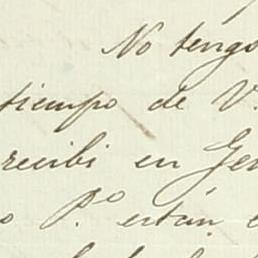 No tengo
tiempo de V.
recibi en Gen
o P.º están